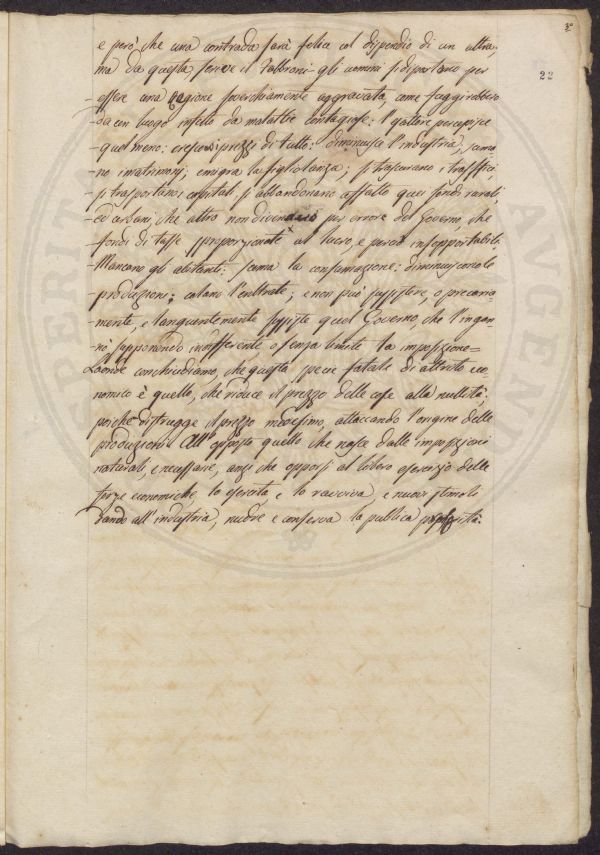 3º
22
e però che una contrada sarà felice col dispendio di un altra,
ma da questa scrive il Fabbroni gli uomini si diportano per
essere una Regione soverchiamente aggravata, come fuggirebbero
da un luogo infetto da malattie contagiose: l'
quel meno: cresconsi prezzi di tutto: diminuisce l'industria; scema-
no i matrimonj; emigra la figliolanza; si trascurano i traffici
si trasportano i capitali, si abbandonano affatto quei fondi rurali,
ed urbani, che altro non divennero per errore del Governo, che
fondi di tasse sproporzionate al lucro, e perciò insopportabili.
Mancano gli abitanti: scema la consumazione: diminuiscono le
produzioni; calano l'entrate; e non può sussistere, o precaria-
mente, e languentemente sussiste quel Governo, che l'ingan-
nò supponendo indifferente o senza limite la imposizione =
Laonde conchiudiamo, che questa specie fatale di attrito eco-
nomico è quello, che riduce il prezzo delle cose alla nullità,
poichè distrugge il prezzo medesimo, attaccando l'origine delle
produzioni. All'opposto quello, che nasce dalle imposizioni
naturali, e necessarie, anzi che opporsi al libero esercizio delle
forze economiche, lo esercita, e lo ravviva, e nuovi stimoli
dando all'industria, nutre e conserva la pubblica prosperità.
SPERIT
AVGENT